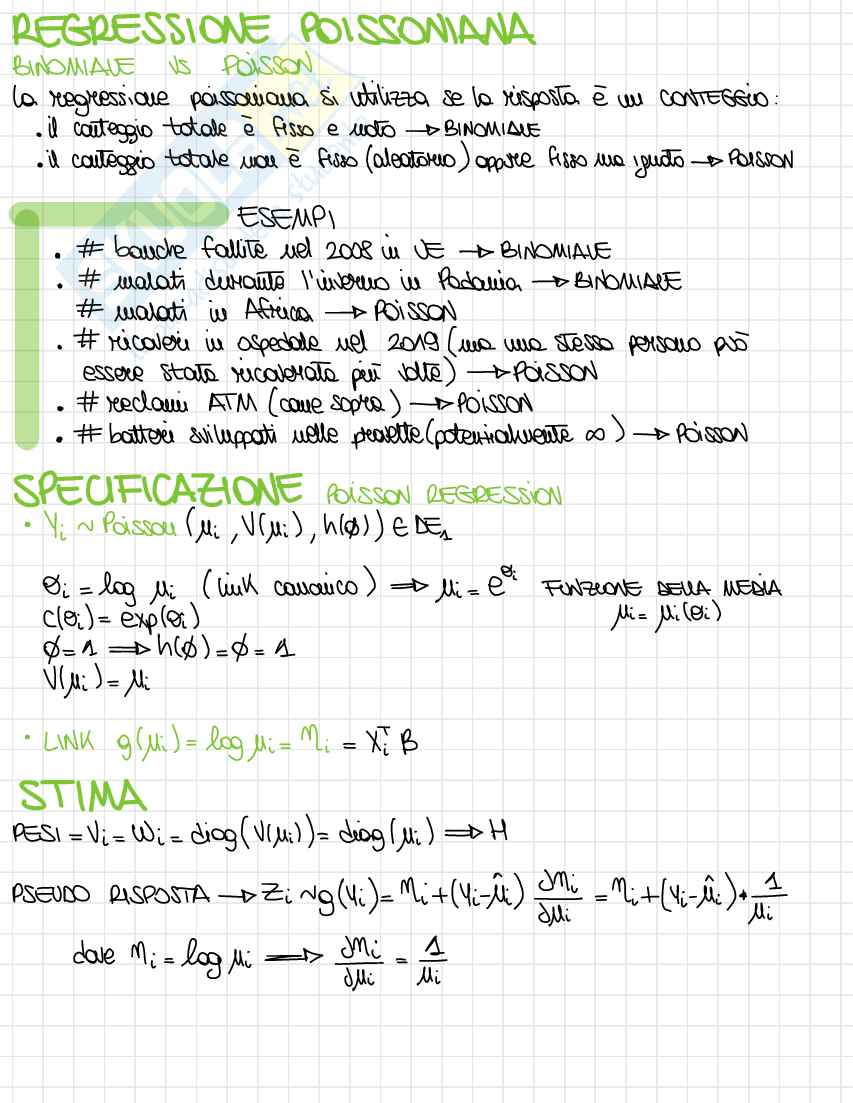 REGRESSIONE POISSONIANA
BINOMIALE VS POISSON
La regressione poissoniana si utilizza se la risposta è un CONTEGGIO:
• il conteggio totale è fisso e noto → BINOMIALE
• il conteggio totale non è fisso (aleatorio) oppure fisso ma ignoto → POISSON
ESEMPI
• # banche fallite nel 2008 in UE → BINOMIALE
• # malati durante l'inverno in Padania → BINOMIALE
# malati in Africa → POISSON
• # ricoveri in ospedale nel 2019 (ma una stessa persona può
essere stata ricoverata più volte) → POISSON
• # reclami ATM (come sopra) → POISSON
• # batteri sviluppati nelle provette (potenzialmente ∞) → POISSON
SPECIFICAZIONE POISSON REGRESSION
• Yi ~ Poisson (μi, V(μi), h(φ)) ∈ DE₁
θi = log μi (link canonico) ⟹ μi = e^θi FUNZIONE DELLA MEDIA
μi = μi(θi)
c(θi) = exp(θi)
φ = 1 ⟹ h(φ) = φ = 1
V(μi) = μi
• LINK g(μi) = log μi = ηi = Xiᵀ B
STIMA
PESI = Vi = Wi = diag(V(μi)) = diag(μi) ⟹ H
PSEUDO RISPOSTA → Zi ~ g(Yi) = ηi + (Yi - μ̂i) ∂ηi/∂μi = ηi + (Yi - μ̂i) • 1/μi
dove ηi = log μi ⟹ ∂ηi/∂μi = 1/μi